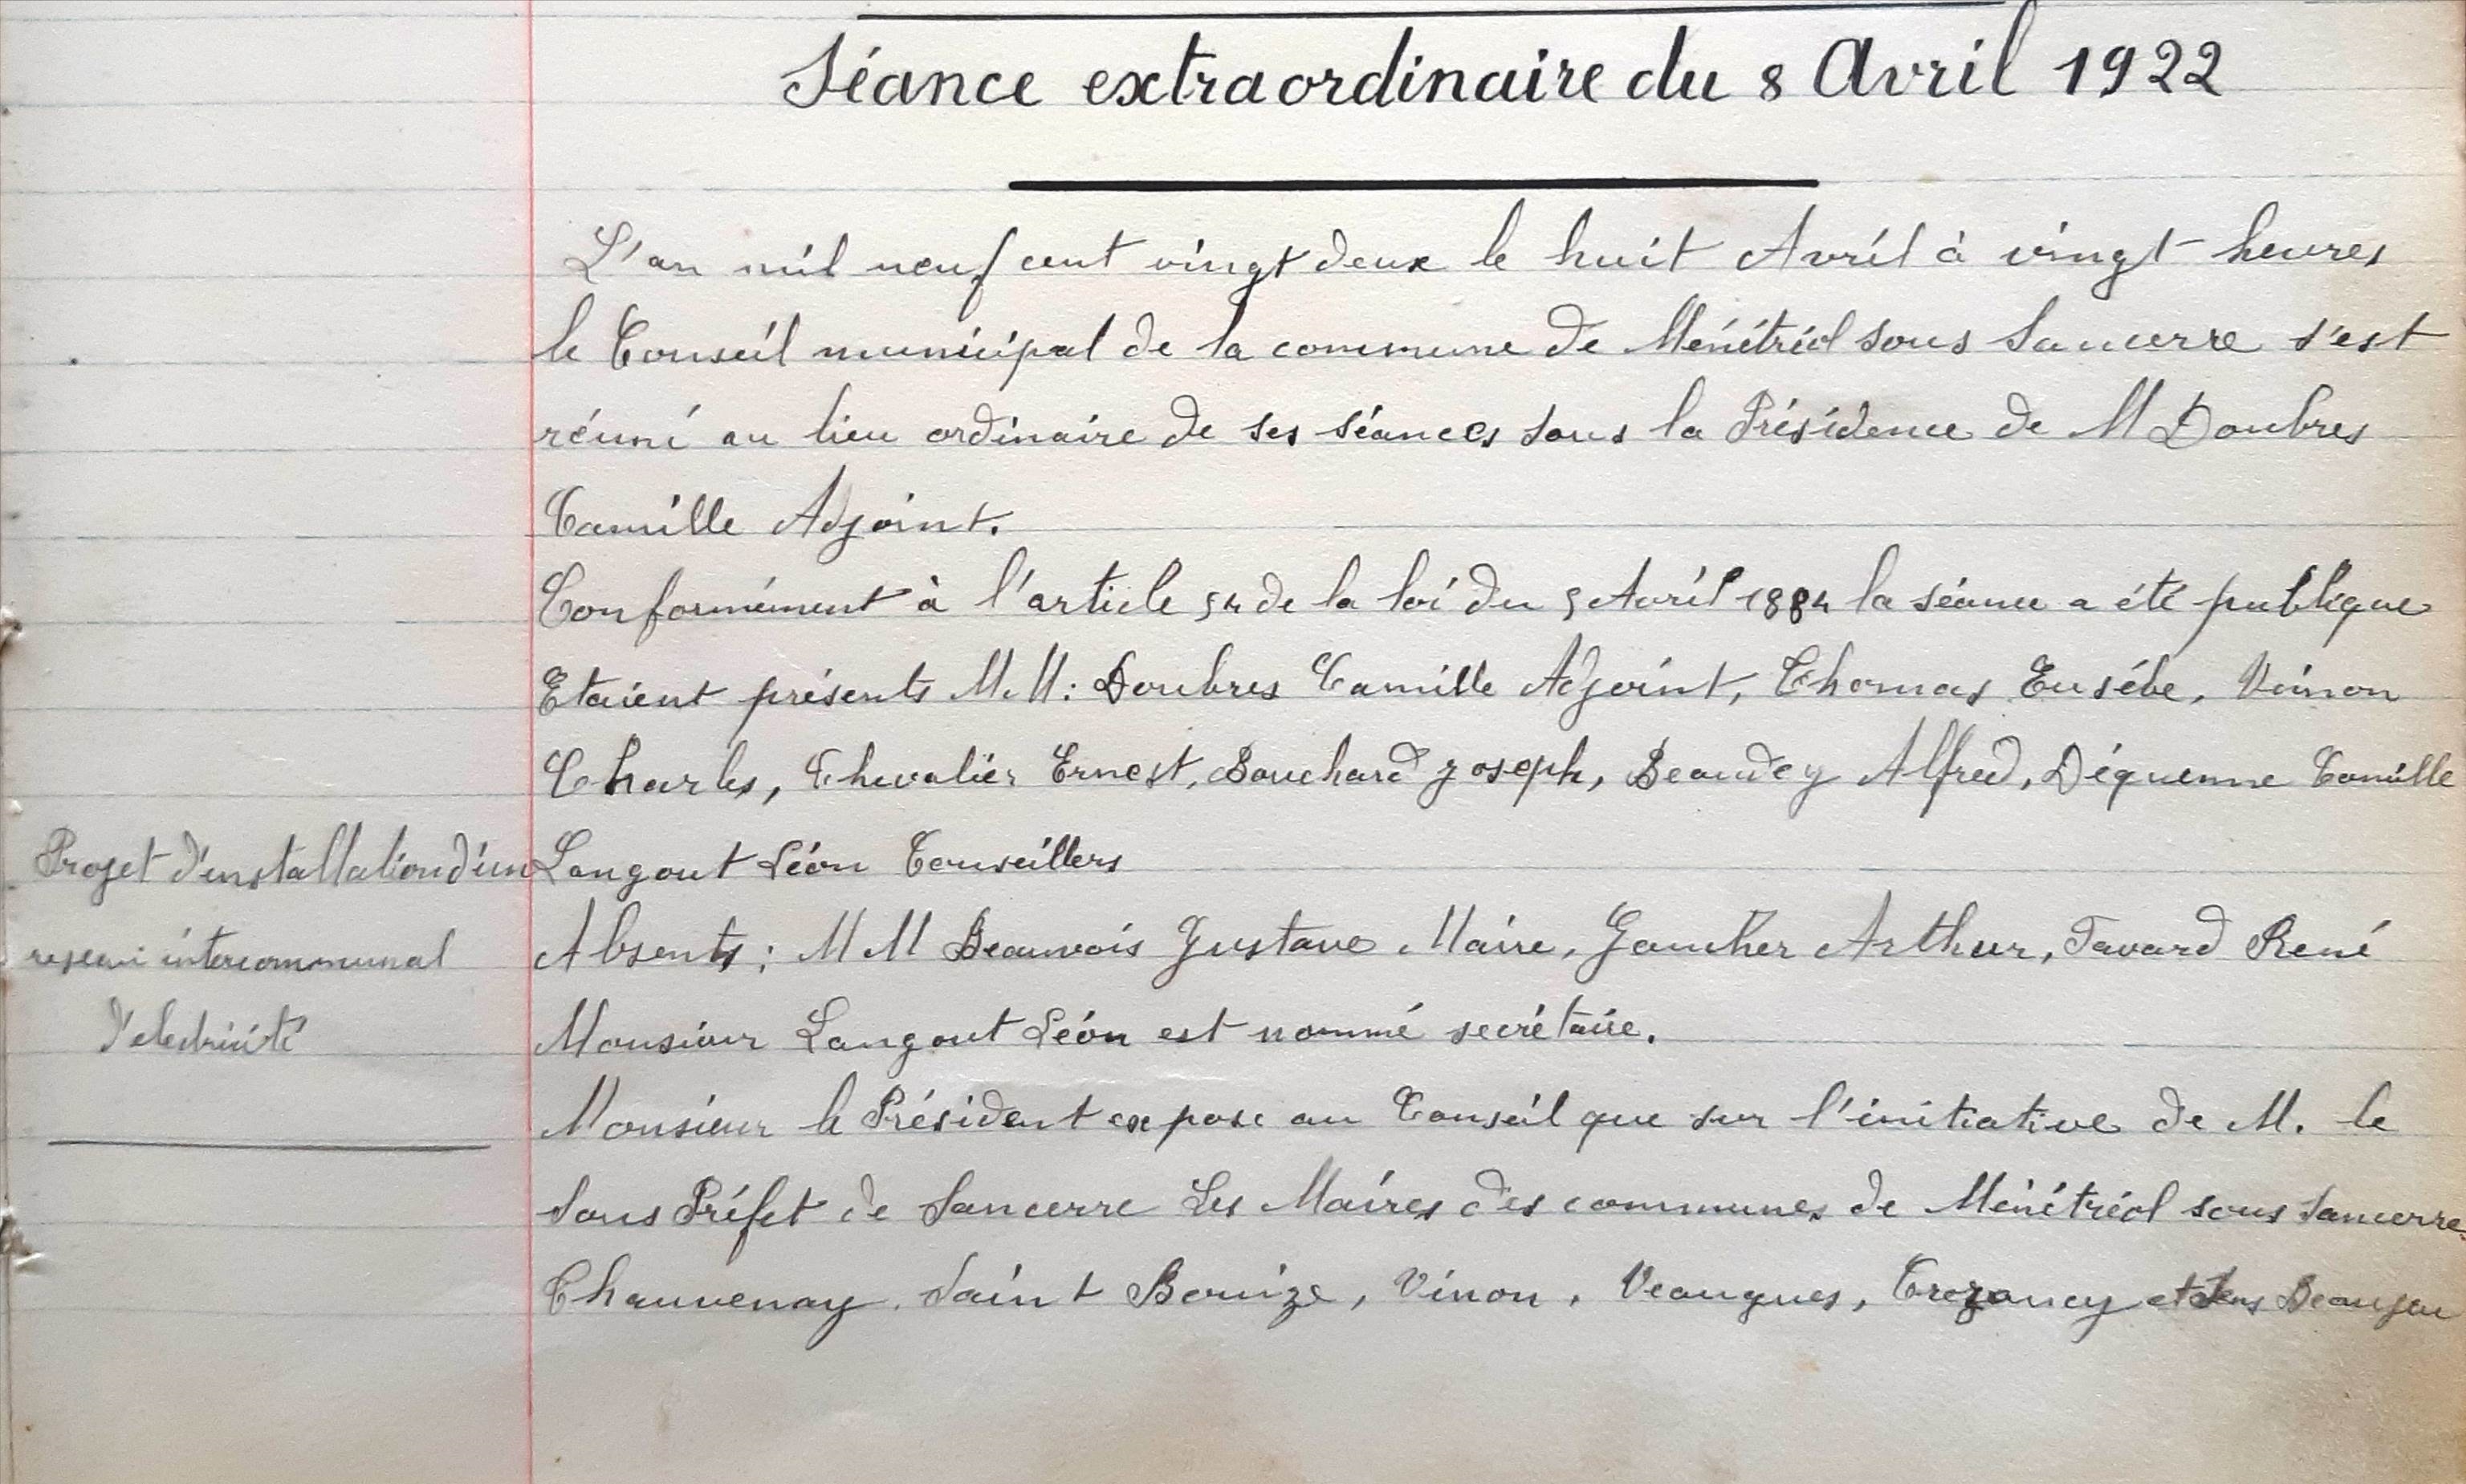 Séance extraordinaire du 8 Avril 1922
L'an mil neuf cent vingt deux le huit Avril à vingt heures
le Conseil municipal de la commune de Ménétréol sous Sancerre s'est
réuni au lieu ordinaire de ses séances sous la Présidence de M Doubres
Camille Adjoint.
Conformément à l'article 54 de la loi du 5 Avril 1884 la séance a été publique
Etaient présents M.M: Doubres Camille Adjoint, Thomas Eusébe, Vinon
Charles, Chevalier Ernest, Bouchard Joseph, Beaudey Alfred, Déquenne Camille
Langout Léon Conseillers
Absents: MM Beauvois Gustave Maire, Gaucher Arthur, Tavard René
Monsieur Langout Léon est nommé secrétaire.
Projet d'installation d'un
reseau intercommunal
d'electricité
Monsieur le Président expose au Conseil que sur l'initiative de M. le
Sous Préfet de Sancerre Les Maires des communes de Ménétréol sous Sancerre
Chauvenay. Saint Bouize, Vinon, Veaugues, Crezancy et Sens Beaujeu